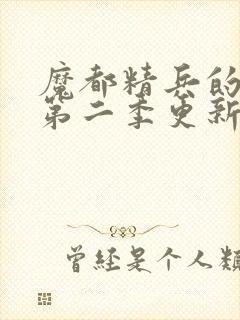 魔都精兵的
第二季更新
曾经是个人類